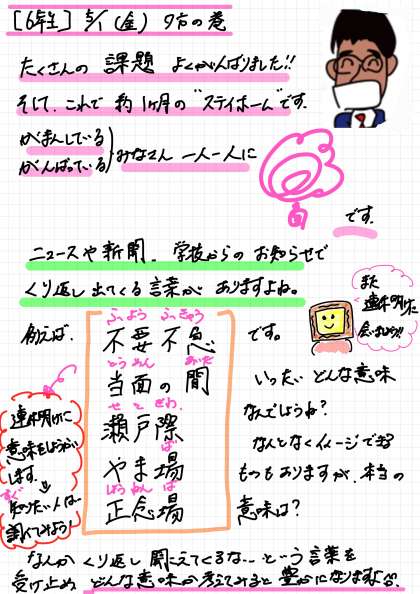 [6年生] 5/1 (金) 夕方の巻
たくさんの 課題 よくがんばりました!!
そして、これで 約1ヶ月の "ステイホーム"です.
がまんしている
がんばっている
みなさん 一人一人に
です.
ニュースや新聞、学校からの お知らせで
くり返し出てくる言葉が ありますよね。
例えば、
ふよう ふきゅう
不要不急
とうめん あいだ
当面の間
せと ぎわ
瀬戸際
ば
やま場
しょうねん ば
正念場
です。
また
連休明けに
会いましょう!!
いったい どんな意味
なんでしょうね?
なんとなくイメージできる
ものもありますが、本当の
意味は?
連休明けに
意味をしょうかい
します.
すぐ
知りたい人は
調べてみよう!
なんか くり返し 聞こえてくるな…という言葉を
受け止め どんな意味か考えてみると 豊かになりますよ